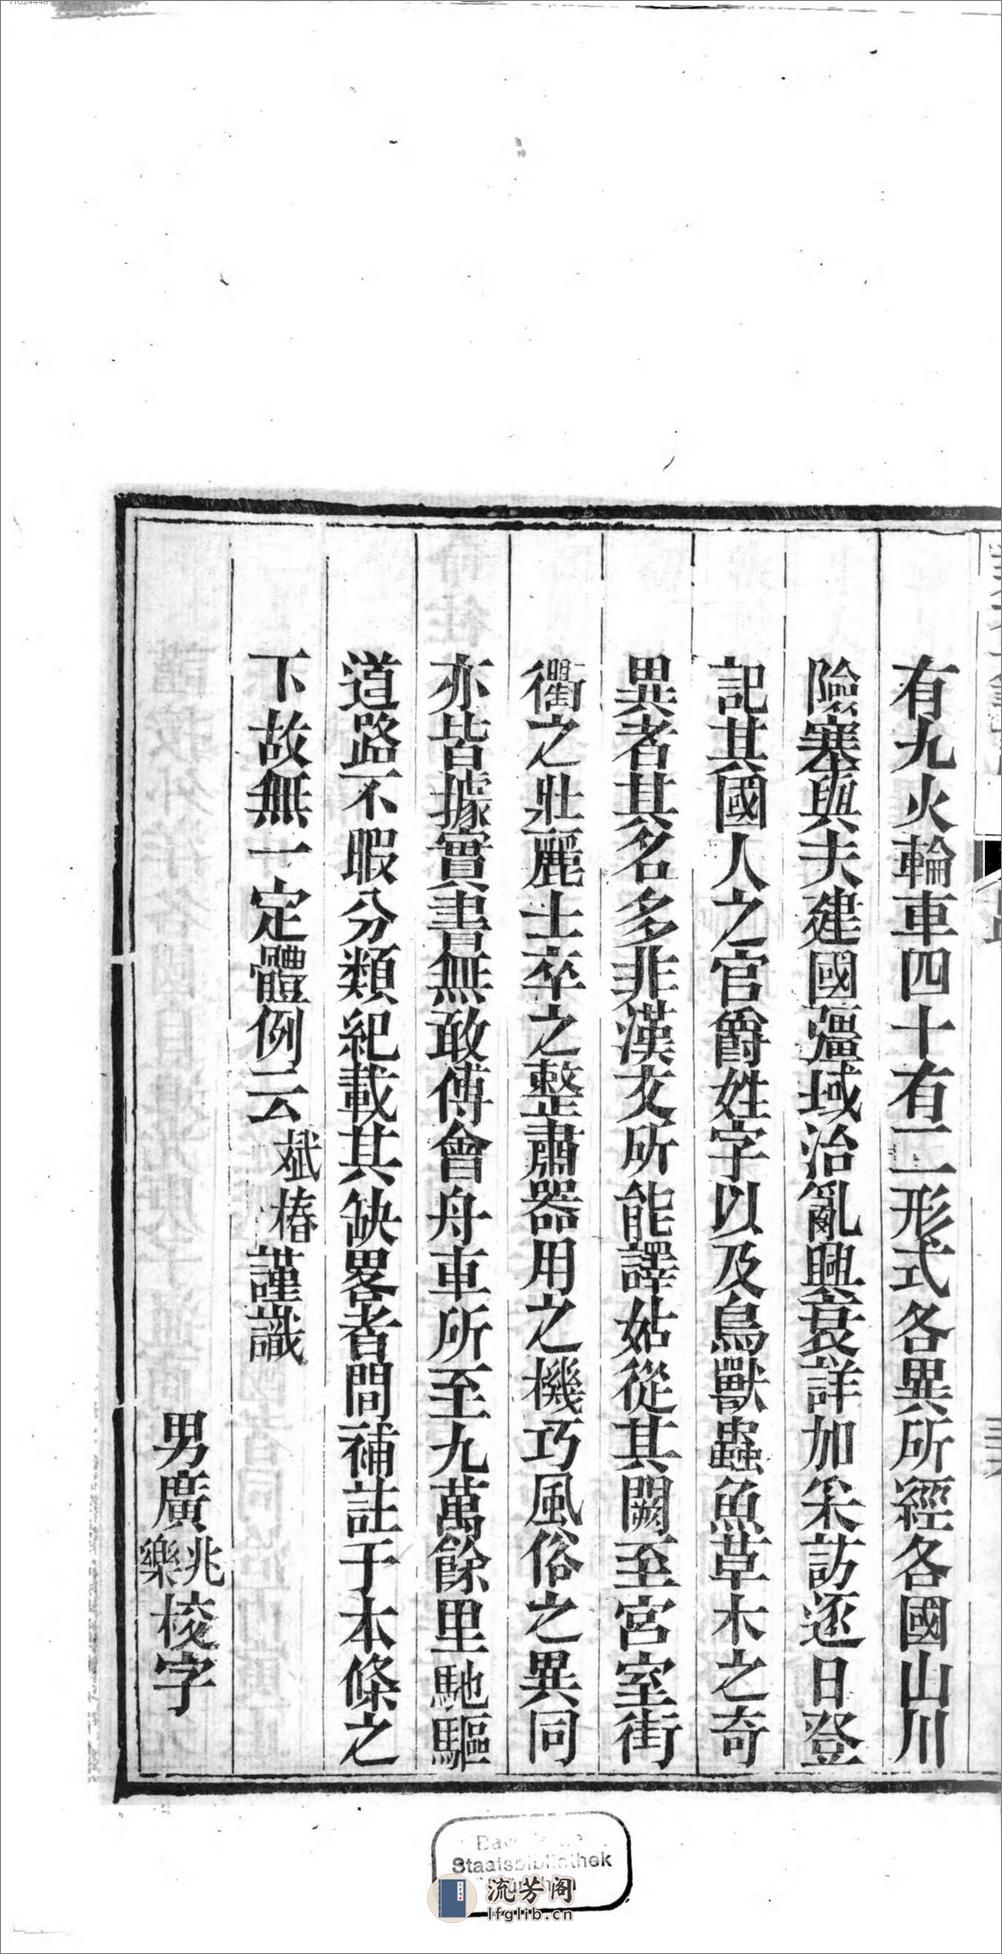 有九火輪車四十有二形式各異所經各國山川
險塞與夫建國疆域治亂興衰詳加采訪逐日登
記其國人之官爵姓字以及鳥獸蟲魚草木之奇
異者其名多非漢文所能譯姑從其闕至宮室街
衢之壯麗士卒之整肅器用之機巧風俗之異同
亦皆據實書無敢傅會舟車所至九萬餘里馳驅
道路不暇分類紀載其缺畧者間補註于本條之
下故無一定體例云斌椿謹識
男廣兆樂校字
Staatsbibliothek
流芳阁
lfglib.cn